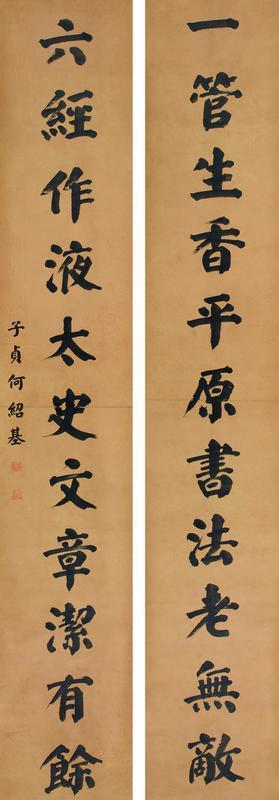 一管生香平原書法老無敵
六經作液太史文章潔有餘
子貞何紹基